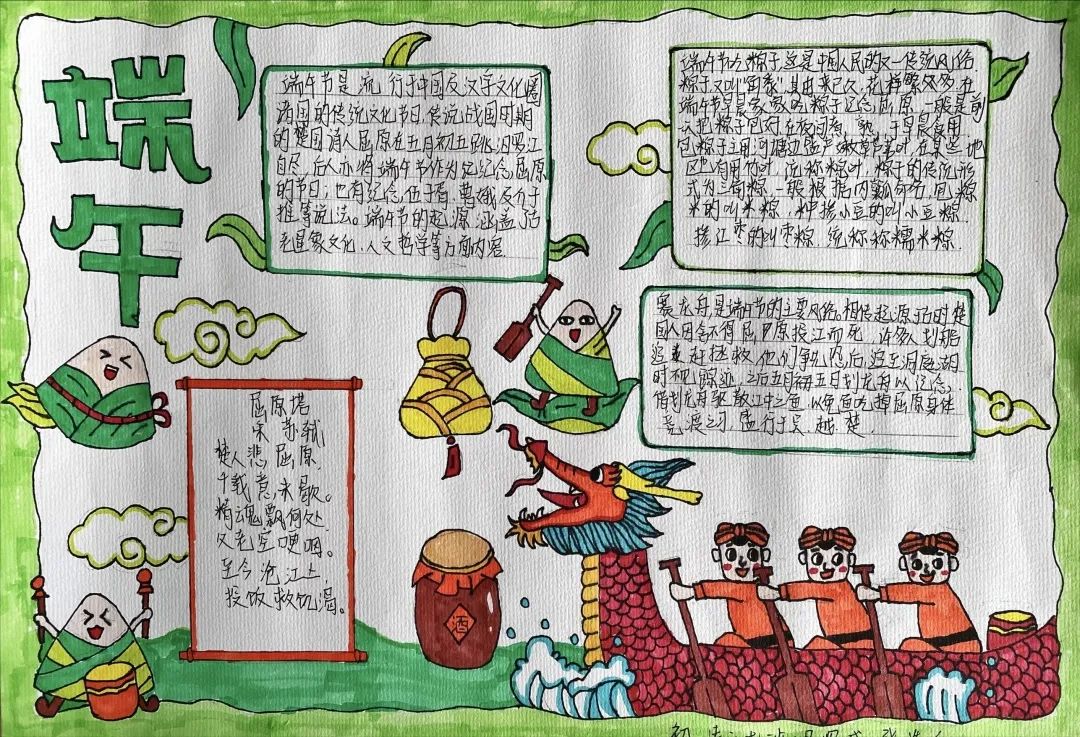 端午
端午节是流行于中国及汉字文化圈
诸国的传统文化节日,传说战国时期
的楚国诗人屈原在五月初五跳汨罗江
自尽,后人亦将端午节作为纪念屈原
的节日;也有纪念伍子胥.曹娥及介子
推等说法。端午节的起源涵盖
星象文化.人文哲学等方面内容.
端午节方粽子,这是中国人民的又一传统风俗
粽子,又叫"角黍",其由来已久,花样繁多.在
端午节早晨家家吃粽子纪念屈原,一般是前
一把粽子包好.在夜间煮熟,于早晨食用.
包粽子主用河塘边盛产嫩芦苇叶,在某些地
区也有用竹叶,统称粽叶,粽子的传统形
式为三角粽,一般根据内瓤命名,包粽
米的叫米粽,种掺小豆的叫小豆粽.
掺红枣的叫枣粽,统称称糯米粽.
赛龙舟,是端午节的主要风俗。相传起源于古时楚
国人因舍不得屈原投江而死,许多人划船
追赶拯救.他们争先恐后,追至洞庭湖
时不见踪迹,之后五月五日划龙舟以纪念.
借划龙舟驱散江中之鱼,以免鱼吃掉屈原身体
竞渡之习,盛行于吴.越.楚.
屈原塔
宋 苏轼
楚人悲屈原,
千载意未歇。
精魂飘何处,
父老空哽咽。
至今沧江上,
投饭救饥渴。
酒